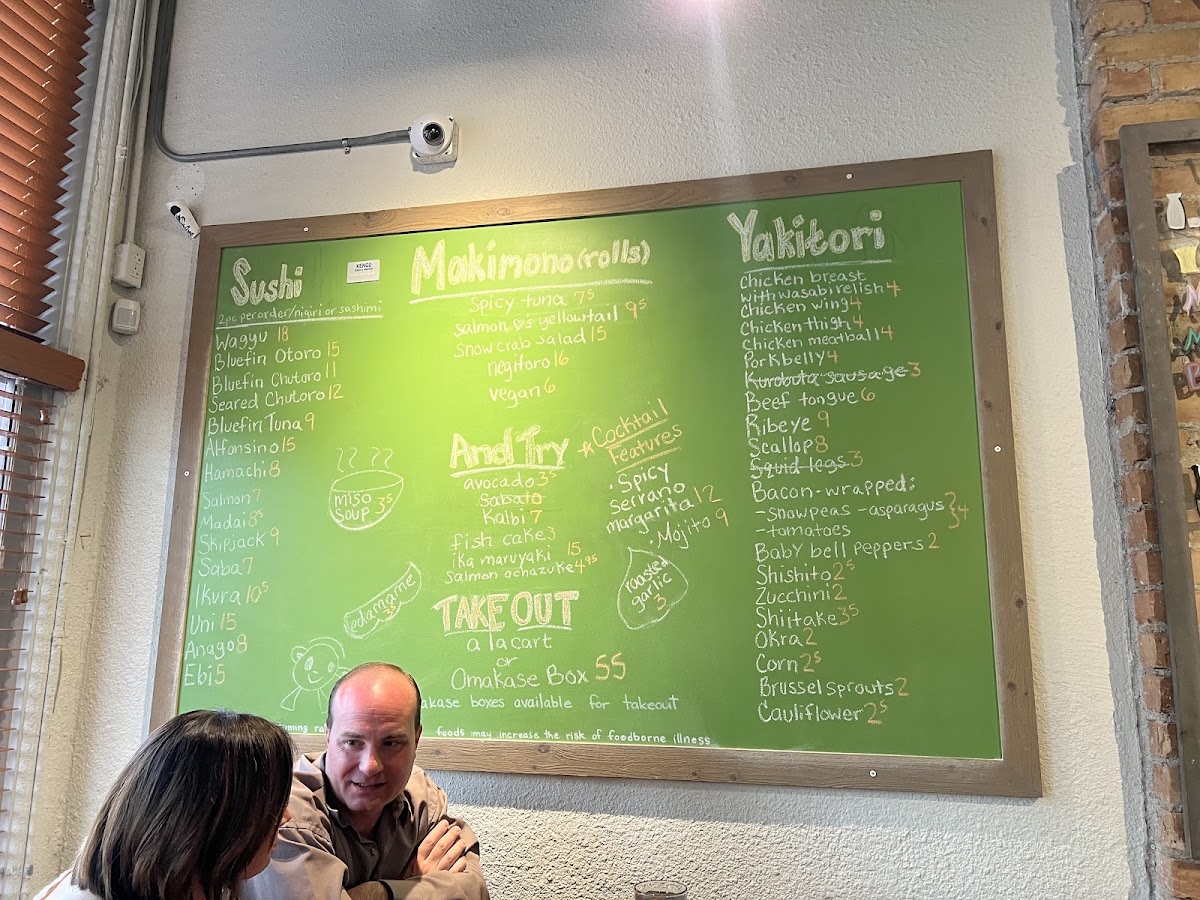 Sushi
2pc per order/nigiri or sashimi
Wagyu 18
Bluefin Otoro 15
Bluefin Chutoro 11
Seared Chutoro 12
Bluefin Tuna 9
Alfonsino 15
Hamachi 8
Salmon 7
Madai 8⁵
Skipjack 9
Saba 7
Ikura 10⁵
Uni 15
Anago 8
Ebi 5
KENGO
miso
soup 3⁵
edamame
3⁵
Makimono (rolls)
Spicy tuna 7⁵
salmon ♡'s yellowtail 9⁵
snow crab salad 15
negitoro 16
vegan 6
And Try
avocado 3⁵
Sabato
Kalbi 7
fish cake 3
ika maruyaki 15
Salmon ochazuke 4⁹⁵
TAKE OUT
a la cart
or
Omakase Box 55
akase boxes available for takeout
foods may increase the risk of foodborne illness
* Cocktail
Features
• Spicy
Serrano
margarita 12
• Mojito 9
roasted
garlic
3
Yakitori
chicken breast
with wasabi relish 4
Chicken wing 4
Chicken thigh 4
Chicken meatball 4
Pork belly 4
Kurobuta sausage 3
Beef tongue 6
Ribeye 9
Scallop 8
Squid legs 3
Bacon-wrapped:
-snowpeas -asparagus } 4
-tomatoes
Baby bell peppers 2
Shishito 2⁵
Zucchini 2
Shiitake 3⁵
Okra 2
Corn 2⁵
Brussel sprouts 2
Cauliflower 2⁵